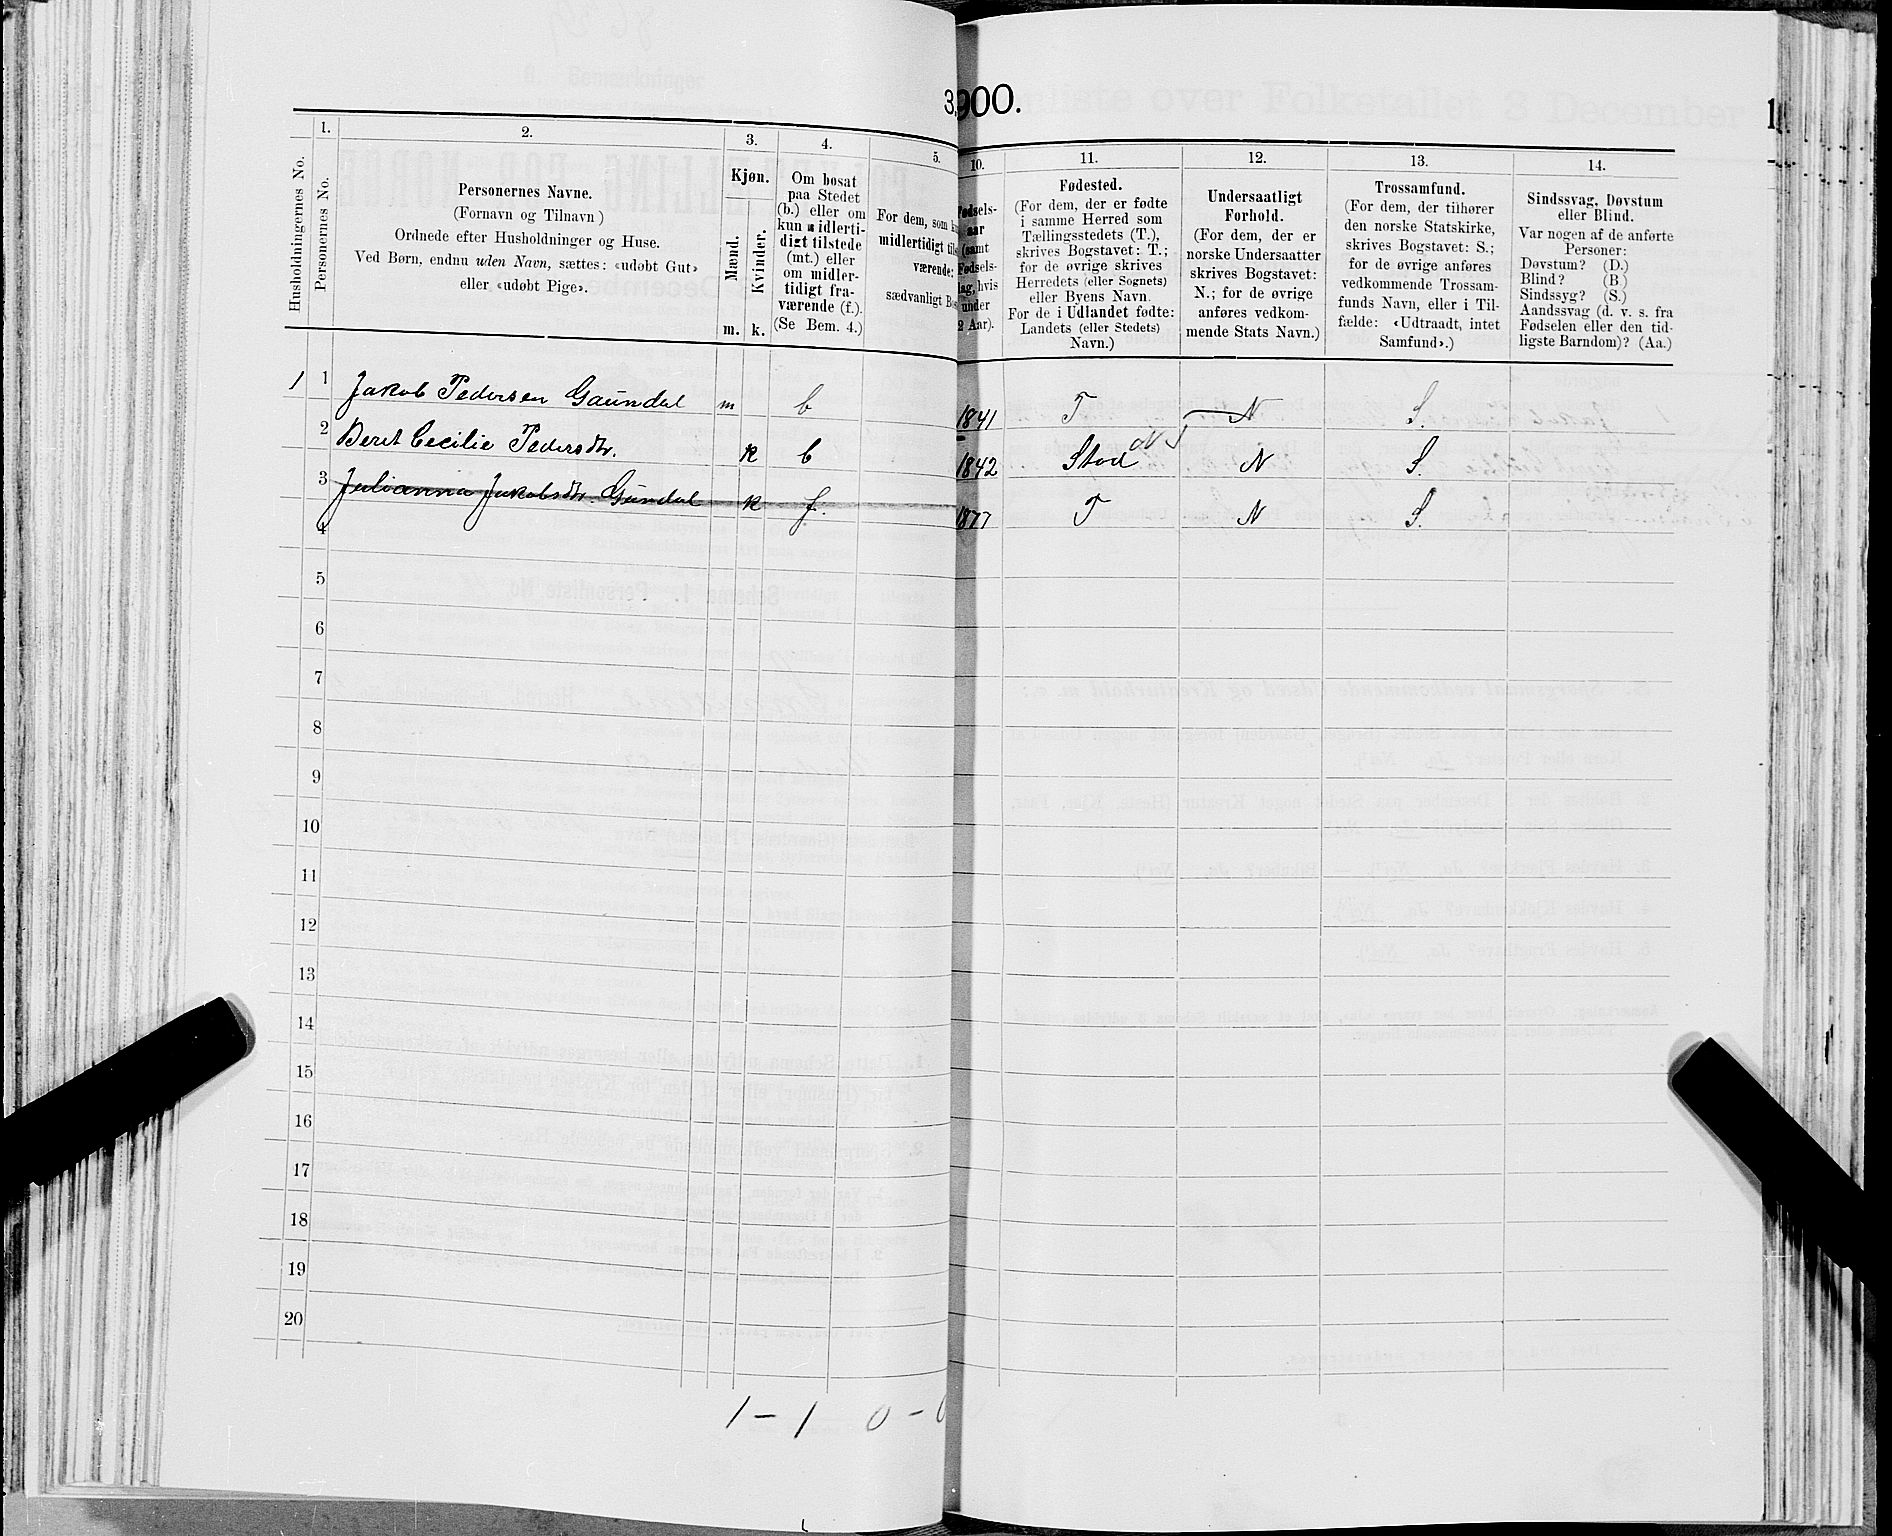 3,900.
1.
2.
3.
4.
5.
10.
11.
12.
13.
14.
Husholdningernes No.
Personernes No.
Personernes Navne.
(Fornavn og Tilnavn)
Ordnede efter Husholdninger og Huse.
Ved Børn, endnu uden Navn, sættes: «udøbt Gut»
eller «udøbt Pige».
Kjøn.
Mænd.
Kvinder.
m.
k.
Om bosat
paa Stedet
(b.) eller om
kun midlerti-
digt tilstede
(mt.) eller
om midler-
tidigt fra-
værende (f.).
(Se Bem. 4.)
For dem, som
midlertidigt
værende:
sædvanligt
Fødsels-
aar
(samt
Fødsels-
dag, hvis
under
2 Aar).
Fødested.
(For dem, der er fødte
i samme Herred som
Tællingsstedets (T.),
skrives Bogstavet: T.;
for de øvrige skrives
Herredets (eller Sognets)
eller Byens Navn.
For de i Udlandet fødte:
Landets (eller Stedets)
Navn.)
Undersaatligt
Forhold.
(For dem, der er
norske Undersaatter
skrives Bogstavet:
N.; for de øvrige
anføres vedkom-
mende Stats Navn.)
Trossamfund.
(For dem, der tilhører
den norske Statskirke,
skrives Bogstavet: S.;
for de øvrige anføres
vedkommende Trossam-
funds Navn, eller i Til-
fælde: «Udtraadt, intet
Samfund».)
Sindssvag, Døvstum
eller Blind.
Var nogen af de anførte
Personer:
Døvstum? (D.)
Blind? (B.)
Sindssyg? (S.)
Aandssvag (d. v. s. fra
Fødselen eller den tid-
ligste Barndom)? (Aa.)
1 1 Jakob Pedersen Gaundal m b 1841 T N S.
2 Beret Cecilie Pedersdtr. k b 1842 Stod N T N S.
3 Julianna Jakobsdtr. Gundal k f. 1877 T N S.
4
5
6
7
8
9
10
11
12
13
14
15
16
17
18
19
20
1 - 1 0 - 0